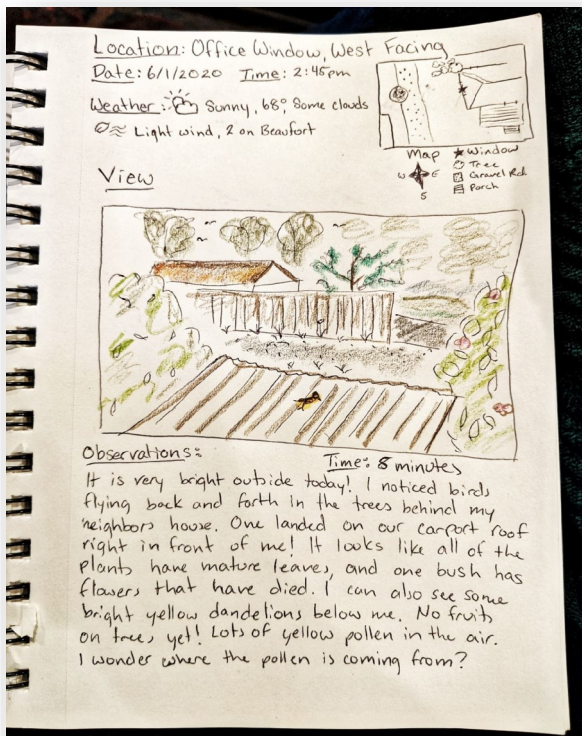 Location: Office Window, West Facing
Date: 6/1/2020 Time: 2:45pm
Weather: Sunny, 68°, Some clouds
Light wind, 2 on Beaufort
Map
W E
S
★ Window
Tree
Gravel Rd.
Porch
View
Observations:
Time: 8 minutes
It is very bright outside today! I noticed birds
flying back and forth in the trees behind my
neighbors house. One landed on our carport roof
right in front of me! It looks like all of the
plants have mature leaves, and one bush has
flowers that have died. I can also see some
bright yellow dandelions below me. No fruit
on trees yet! Lots of yellow pollen in the air.
I wonder where the pollen is coming from?